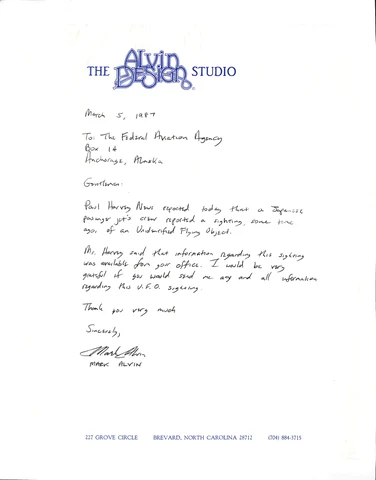 THE Alvin DESIGN STUDIO
March 5, 1987
To: The Federal Aviation Agency
Box 14
Anchorage, Alaska
Gentlemen:
Paul Harvey News reported today that a Japanese
passenger jet's crew reported a sighting, some time
ago, of an Unidentified Flying Object.
Mr. Harvey said that information regarding this sighting
was available from your office. I would be very
grateful if you would send me any and all information
regarding this U.F.O. sighting.
Thank you very much
Sincerely,
Mark Alvin
MARK ALVIN
227 GROVE CIRCLE BREVARD, NORTH CAROLINA 28712 (704) 884-3715